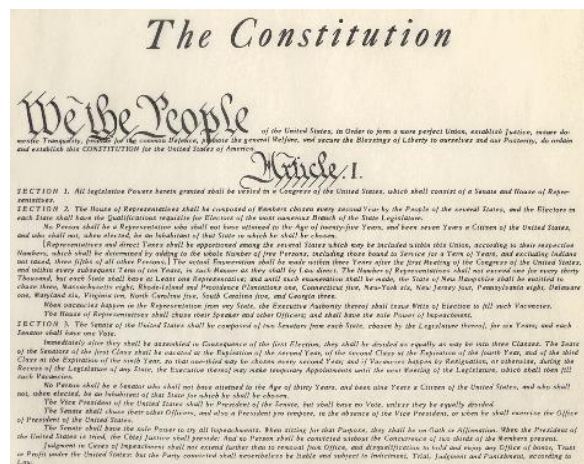 The Constitution
We the People
of the United States, in Order to form a more perfect Union, establish Justice, insure do-
mestic Tranquility, provide for the common Defence, promote the general Welfare, and secure the Blessings of Liberty to ourselves and our Posterity, do ordain
and establish this CONSTITUTION for the United States of America.
Article I.
SECTION 1. All legislative Powers herein granted shall be vested in a Congress of the United States, which shall consist of a Senate and House of Repre-
sentatives.
SECTION 2. The House of Representatives shall be composed of Members chosen every second Year by the People of the several States, and the Electors in
each State shall have the Qualifications requisite for Electors of the most numerous Branch of the State Legislature.
No Person shall be a Representative who shall not have attained to the Age of twenty-five Years, and been seven Years a Citizen of the United States,
and who shall not, when elected, be an Inhabitant of that State in which he shall be chosen.
[Representatives and direct Taxes shall be apportioned among the several States which may be included within this Union, according to their respective
Numbers, which shall be determined by adding to the whole Number of free Persons, including those bound to Service for a Term of Years, and excluding Indians
not taxed, three fifths of all other Persons.] The actual Enumeration shall be made within three Years after the first Meeting of the Congress of the United States,
and within every subsequent Term of ten Years, in such Manner as they shall by Law direct. The Number of Representatives shall not exceed one for every thirty
Thousand, but each State shall have at Least one Representative; and until such enumeration shall be made, the State of New Hampshire shall be entitled to
chuse three, Massachusetts eight, Rhode-Island and Providence Plantations one, Connecticut five, New-York six, New Jersey four, Pennsylvania eight, Delaware
one, Maryland six, Virginia ten, North Carolina five, South Carolina five, and Georgia three.
When vacancies happen in the Representation from any State, the Executive Authority thereof shall issue Writs of Election to fill such Vacancies.
The House of Representatives shall chuse their Speaker and other Officers; and shall have the sole Power of Impeachment.
SECTION 3. The Senate of the United States shall be composed of two Senators from each State, chosen by the Legislature thereof, for six Years; and each
Senator shall have one Vote.
Immediately after they shall be assembled in Consequence of the first Election, they shall be divided as equally as may be into three Classes. The Seats
of the Senators of the first Class shall be vacated at the Expiration of the second Year, of the second Class at the Expiration of the fourth Year, and of the third
Class at the Expiration of the sixth Year, so that one-third may be chosen every second Year; and if Vacancies happen by Resignation, or otherwise, during the
Recess of the Legislature of any State, the Executive thereof may make temporary Appointments until the next Meeting of the Legislature, which shall then fill
such Vacancies.
No Person shall be a Senator who shall not have attained to the Age of thirty Years, and been nine Years a Citizen of the United States, and who shall
not, when elected, be an Inhabitant of that State for which he shall be chosen.
The Vice President of the United States shall be President of the Senate, but shall have no Vote, unless they be equally divided.
The Senate shall chuse their other Officers, and also a President pro tempore, in the absence of the Vice President, or when he shall exercise the Office
of President of the United States.
The Senate shall have the sole Power to try all Impeachments. When sitting for that Purpose, they shall be on Oath or Affirmation. When the President of
the United States is tried, the Chief Justice shall preside: And no Person shall be convicted without the Concurrence of two thirds of the Members present.
Judgment in Cases of Impeachment shall not extend further than to removal from Office, and disqualification to hold and enjoy any Office of honor, Trust
or Profit under the United States: but the Party convicted shall nevertheless be liable and subject to Indictment, Trial, Judgment and Punishment, according to